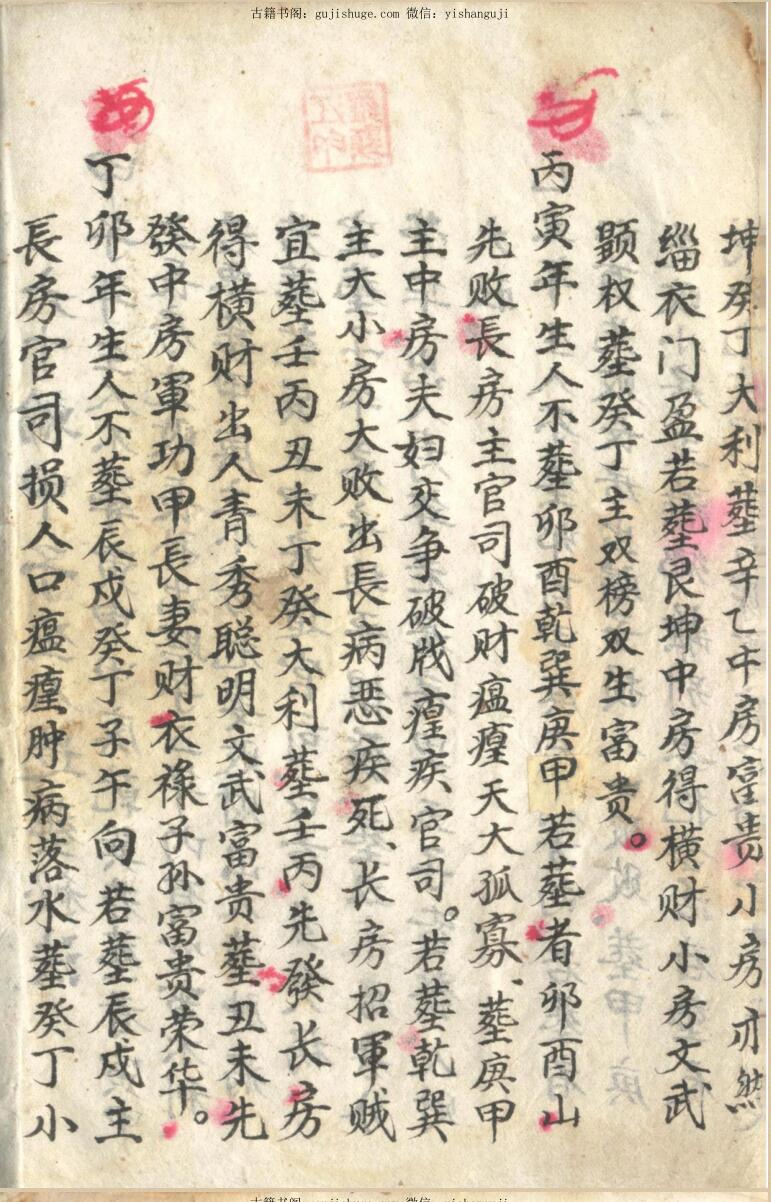 古籍书阁：gujishuge.com 微信：yishanguji
坤癸丁大利葬辛乙中房富贵小房亦然
缁衣门盈若葬艮坤中房得横财小房文武
顕权葬癸丁主双榜双生富贵。
丙寅年生人不葬卯酉乾巽庚甲若葬者卯酉山
先败長房主官司破财瘟𤶊天大孤寡、葬庚甲
主中房夫妇交争破戝𤶊疾官司。若葬乾巽
主大小房大败出長病恶疾死、长房招軍贼
宜葬壬丙丑未丁癸大利葬壬丙先發长房
得横财出人青秀聪明文武富贵葬丑未先
發中房軍功甲長妻财衣禄子孙富贵荣华。
丁卯年生人不葬辰戍癸丁子午向若葬辰戍主
長房官司损人口瘟𤶊肿病落水葬癸丁小